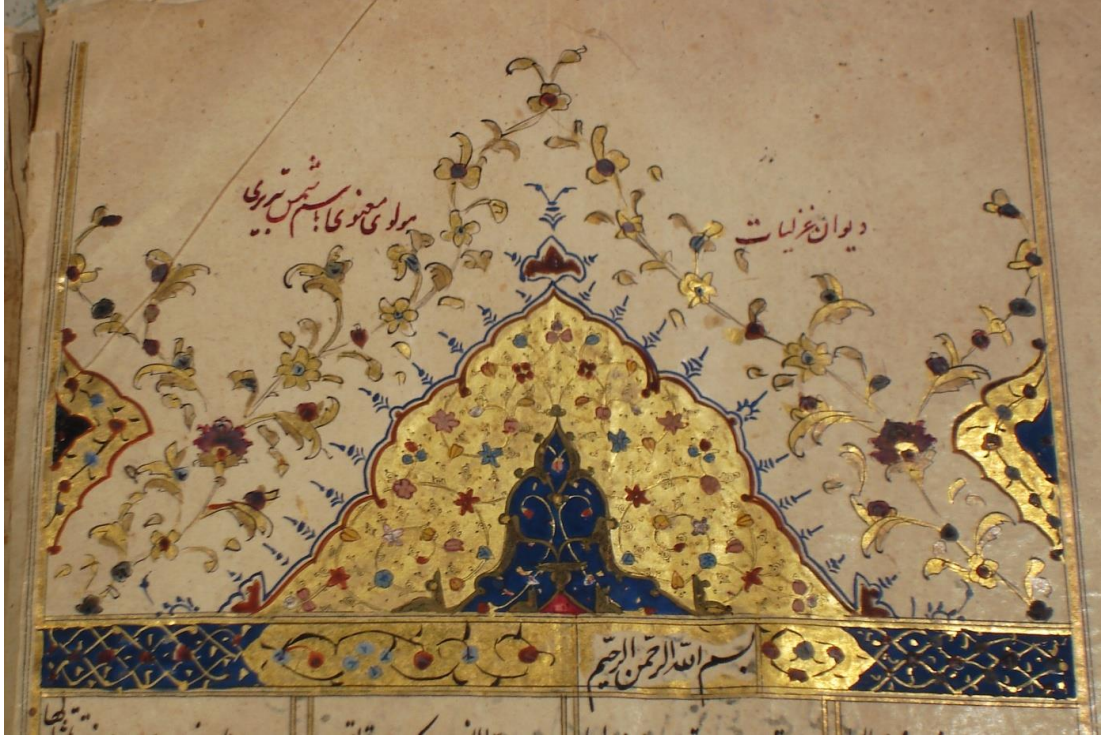 دیوان غزلیات
مولوی معنوی باسم شمس تبریزی
بسم الله الرحمن الرحیم